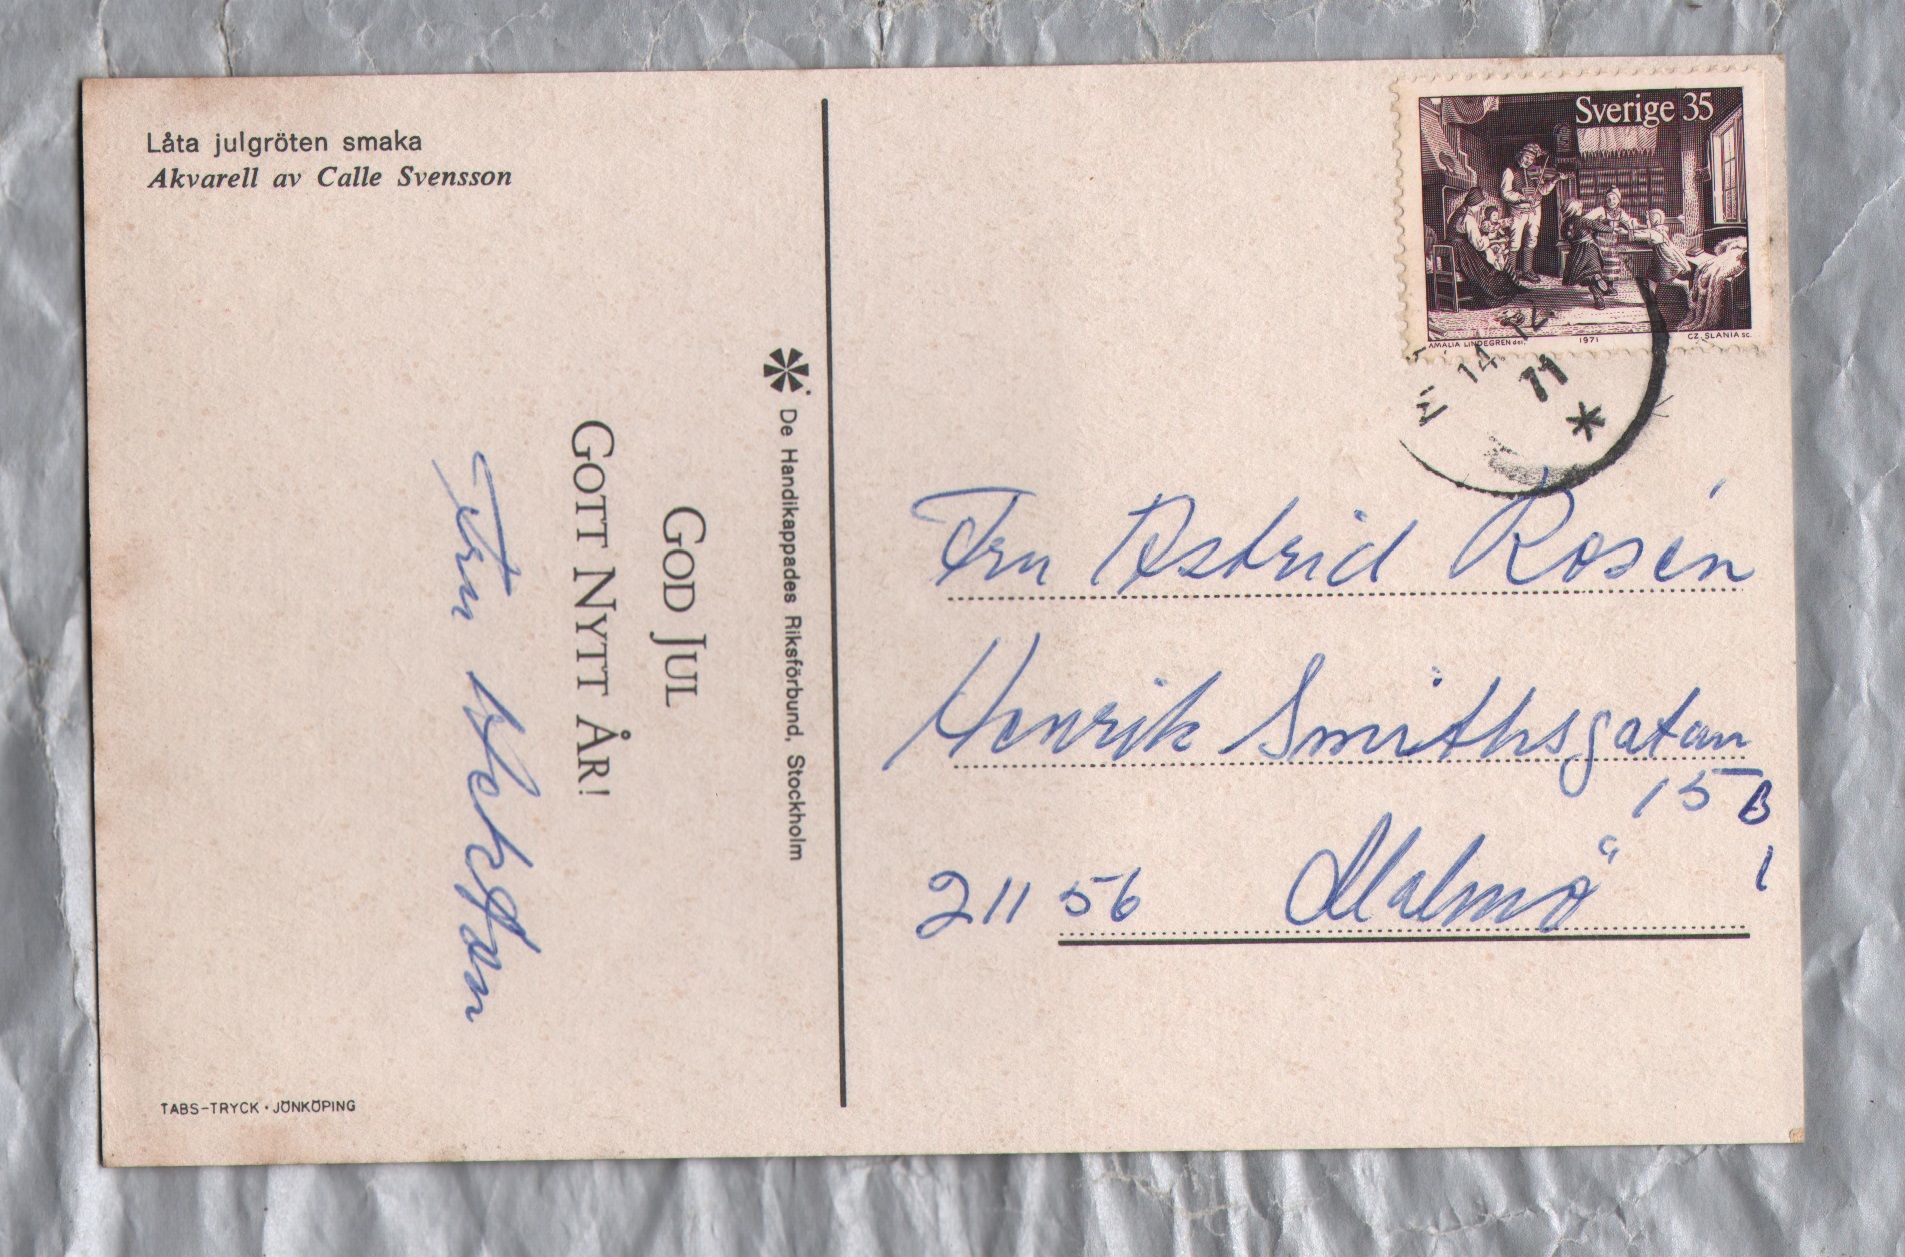 Låta julgröten smaka
Akvarell av Calle Svensson
De Handikappades Riksförbund, Stockholm
GOD JUL
GOTT NYTT ÅR!
Fru
TABS-TRYCK • JÖNKÖPING
Sverige 35
AMALIA LINDEGREN del.
1971
CZ. SLANIA sc.
14 12
71
Fru Astrid Rosén
Henrik Smithsgatan
15 B
1
211 56 Malmö